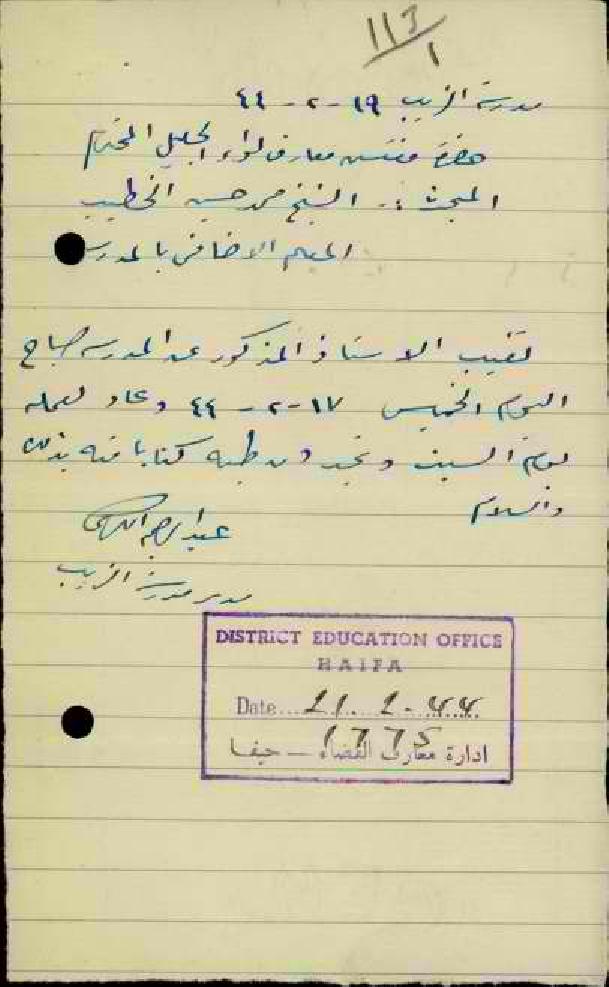 113/1
مدرسة الزيب ١٩-٢-٤٤
حضرة مفتش معارف لواء الجليل المحترم
المبحث :- الشيخ محمد حسين الخطيب
المعلم الاضافي بالمدرسة
تغيب الاستاذ المذكور عن المدرسة صباح
اليوم الخميس ١٧-٢-٤٤ وعاد لعمله
يوم السبت وتجدون طيه كتابا منه بذلك
والسلام
مدير مدرسة الزيب
DISTRICT EDUCATION OFFICE
HAIFA
Date 21.2.44
1775
ادارة معارف القضاء – حيفا